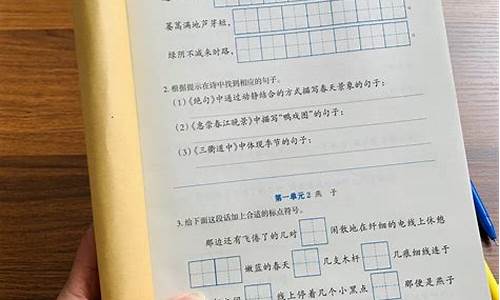 蒌蒿满地芦芽短，
绿阴不减来时路，
2. 根据提示在诗中找到相应的句子。
(1)《绝句》中通过动静结合的方式描写春天景象的句子：
(2)《惠崇春江晚景》中描写“鸭戏图”的句子：
(3)《三衢道中》中体现季节的句子：
第一单元 2 燕 子
3. 给下面这段话加上合适的标点符号。
那边还有飞倦了的几对 闲散地在纤细的电线上休憩
嫩蓝的春天 几支木杆 几痕细线连于
线上停着几个小黑点 那便是燕子